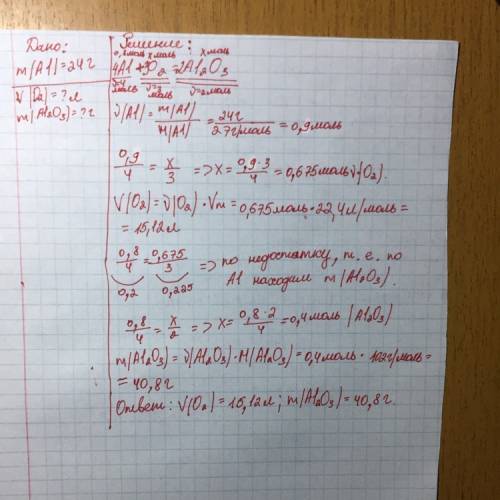 Дано:
m(Al)=24г
V(O₂)=?л
m(Al₂O₃)=?г
Решение:
0,8моль x моль x моль
4Al+3O₂=2Al₂O₃
ν=4 моль ν=3 моль ν=2моль
ν(Al)=m(Al)/M(Al)=24г/27г/моль=0,9моль
0,9/4=x/3=>x=0,9·3/4=0,675моль ν(O₂).
V(O₂)=ν(O₂)·Vm=0,675моль·22,4л/моль=
=15,12л
0,8/4=0,675/3 => по недостатку, т.е. по
0,2 0,225 Al находим m(Al₂O₃).
0,8/4=x/2=>x=0,8·2/4=0,4моль(Al₂O₃)
m(Al₂O₃)=ν(Al₂O₃)·M(Al₂O₃)=0,4моль·102г/моль=
=40,8г
Ответ: V(O₂)=15,12л; m(Al₂O₃)=40,8г.